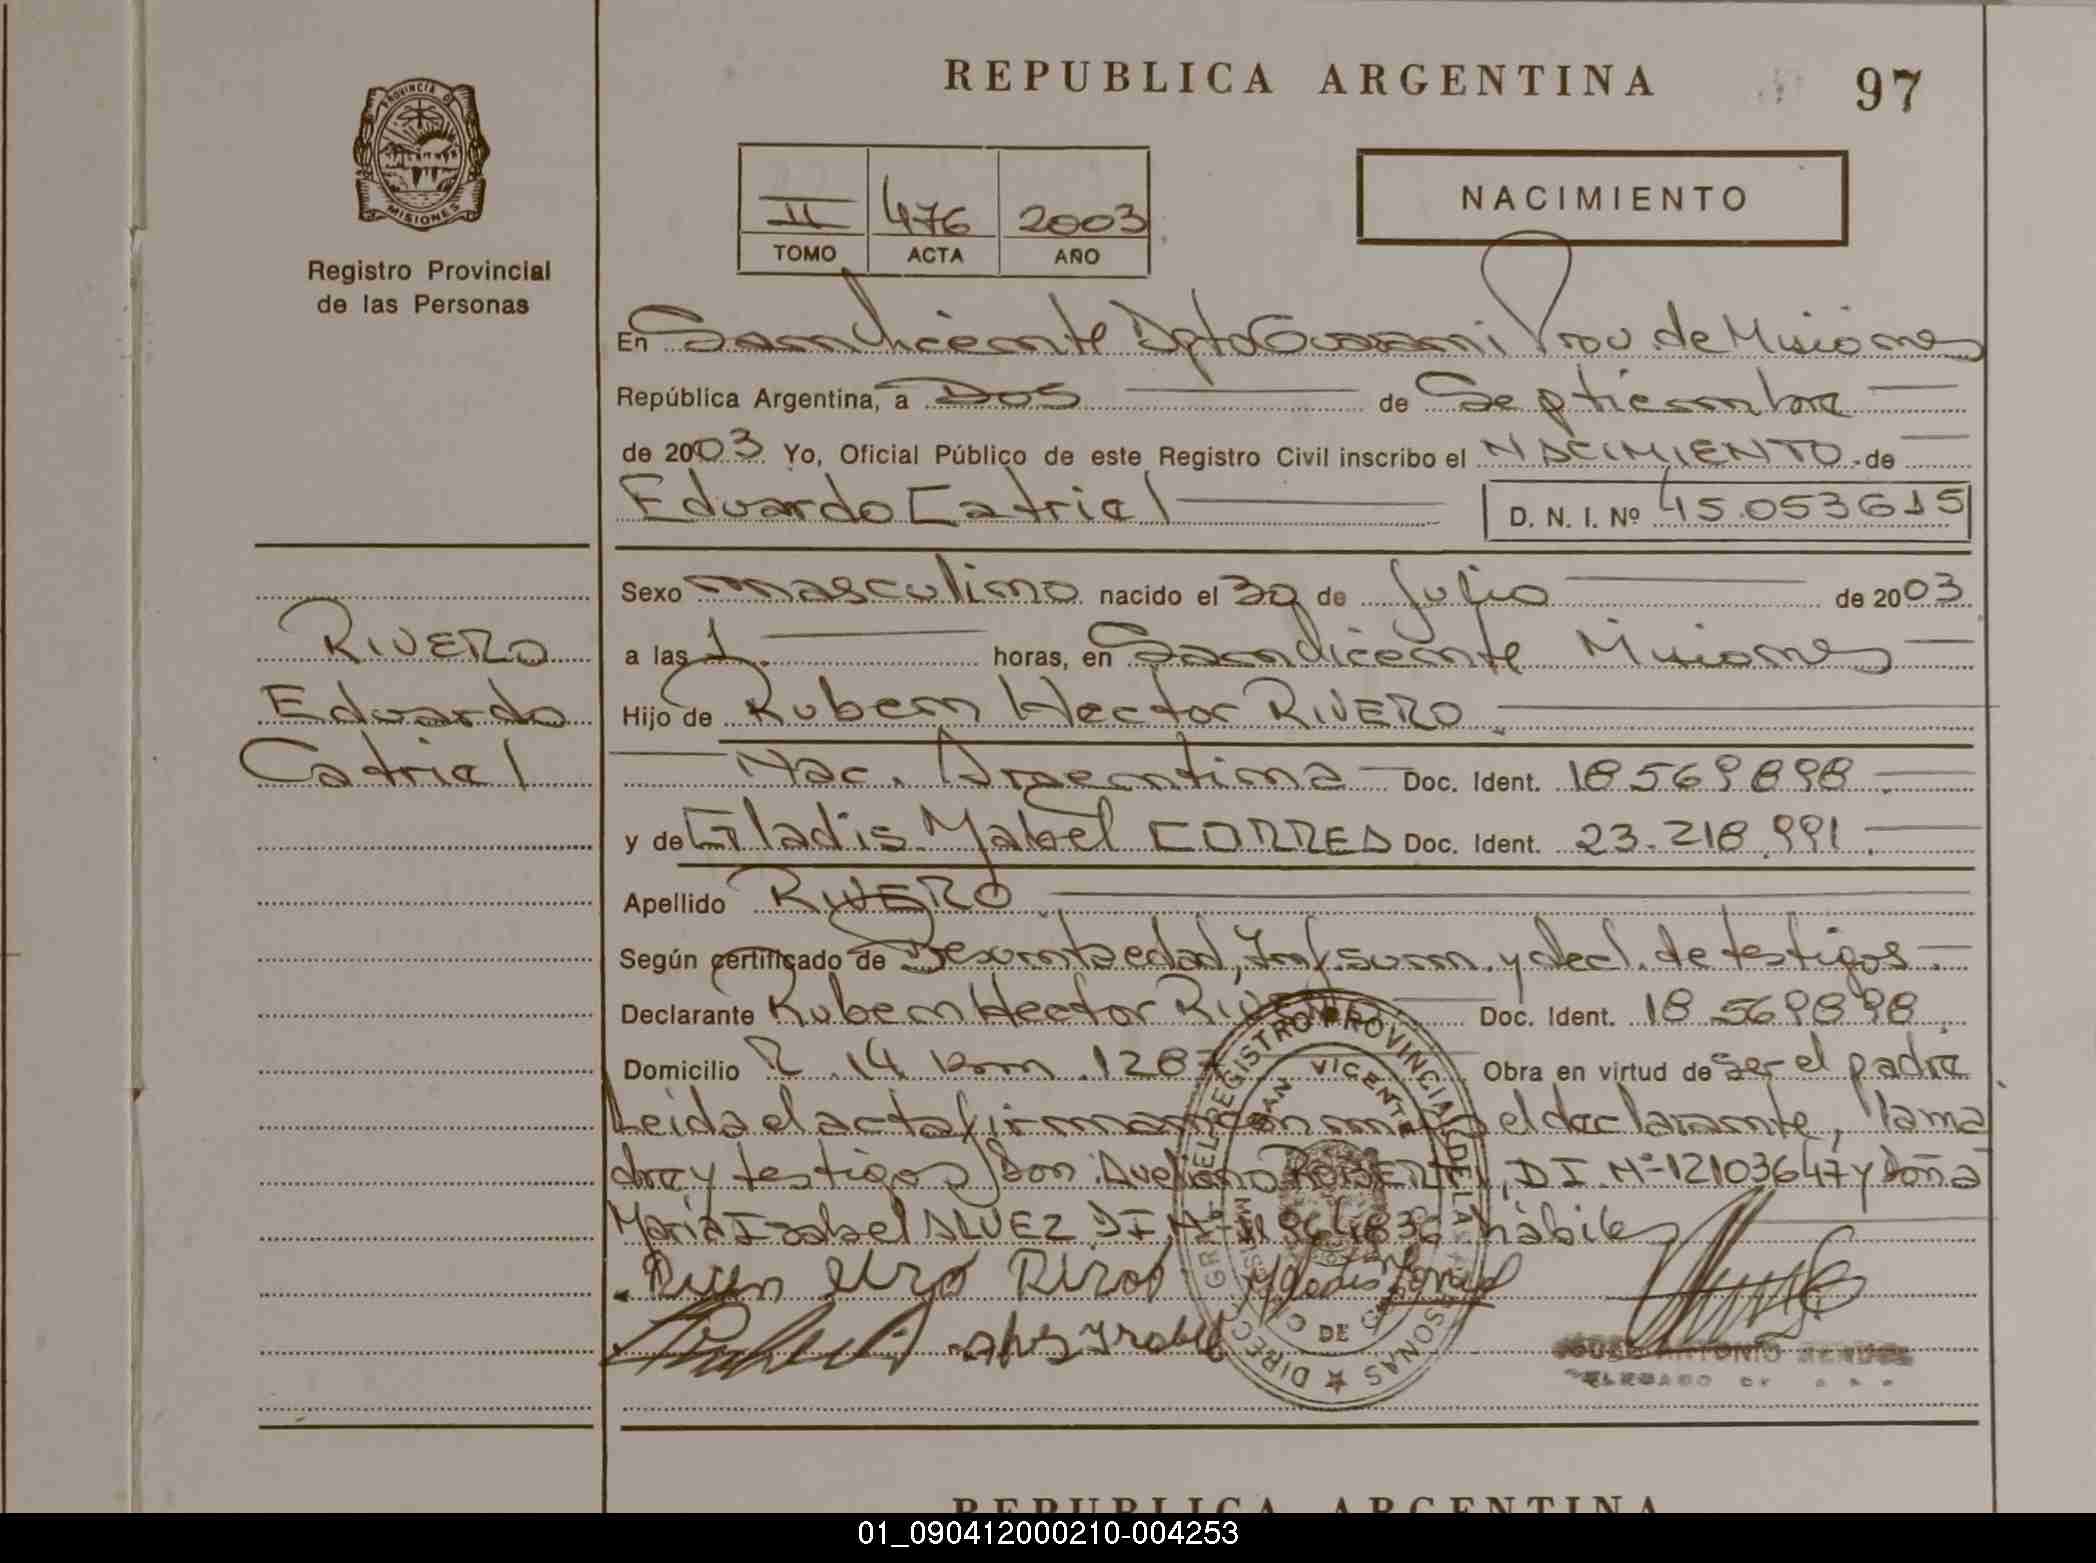 REPUBLICA ARGENTINA
97
PROVINCIA DE MISIONES
Registro Provincial
de las Personas
II 476 2003
TOMO ACTA AÑO
NACIMIENTO
En San Vicente Dpto Guarani Prov. de Misiones
República Argentina, a Dos de Septiembre
de 2003 Yo, Oficial Público de este Registro Civil inscribo el NACIMIENTO de
Eduardo Catriel D. N. I. Nº 45.053615
RIVERO
Eduardo
Catriel
Sexo masculino nacido el 30 de Julio de 2003
a las 1 horas, en San Vicente Misiones
Hijo de Ruben Hector RIVERO
Nac. Argentina Doc. Ident. 18569898
y de Gladis Mabel CORREA Doc. Ident. 23.218.991
Apellido RIVERO
Según certificado de Presunta edad, Inf. sum. y decl. de testigos
Declarante Ruben Hector RIVERO Doc. Ident. 18569898
Domicilio R 14 km 1287 Obra en virtud de ser el padre
Leida el acta firman el declarante, la ma
dre y testigos Don Avelino DI Nº 12103647 y Doña
Maria Izabel ALVEZ DI Nº hábiles
REGISTRO PROVINCIAL DE LAS PERSONAS
SAN VICENTE
ANTONIO
DELEGADO
REPUBLICA ARGENTINA
01_090412000210-004253